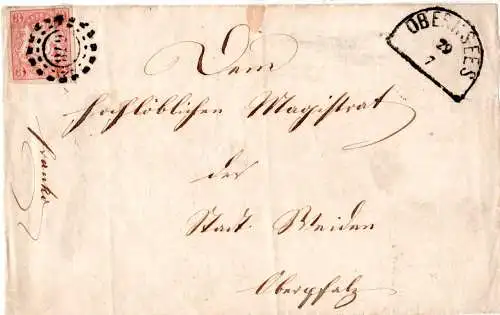 OBERNSEES
29
7
Dem
hochlöblichen Magistrat
der
Stadt Weiden
Oberpfalz
franko